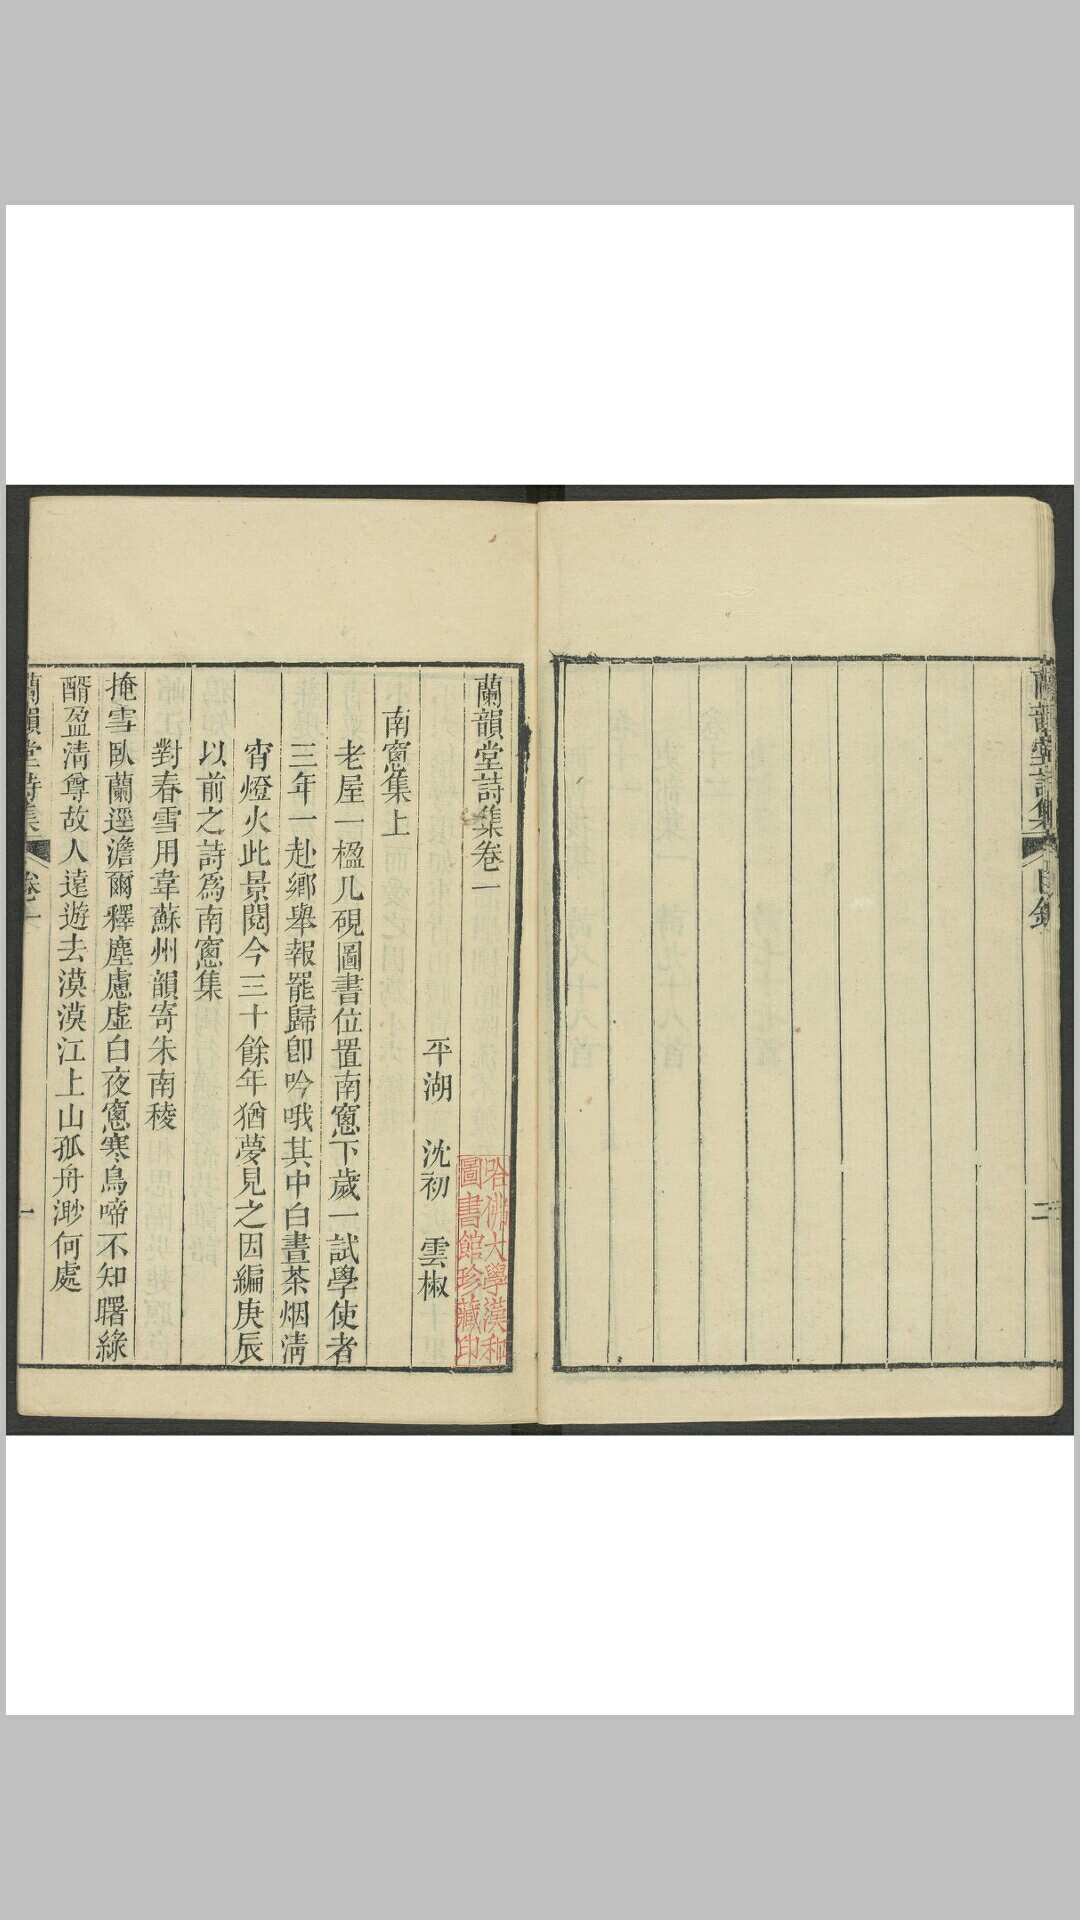 蘭韻堂詩集
目錄
二
蘭韻堂詩集卷一
平湖 沈初 雲椒
哈佛大學漢和
圖書館珍藏印
南窻集上
老屋一楹几硯圖書位置南窻下歲一試學使者
三年一赴鄉舉報罷歸卽吟哦其中白晝茶烟淸
宵燈火此景閱今三十餘年猶夢見之因編庚辰
以前之詩爲南窻集
對春雪用韋蘇州韻寄朱南稜
掩雪臥蘭逕澹爾釋塵慮虛白夜窻寒鳥啼不知曙綠
醑盈淸尊故人遠遊去漠漠江上山孤舟渺何處
蘭韻堂詩集
卷一
一